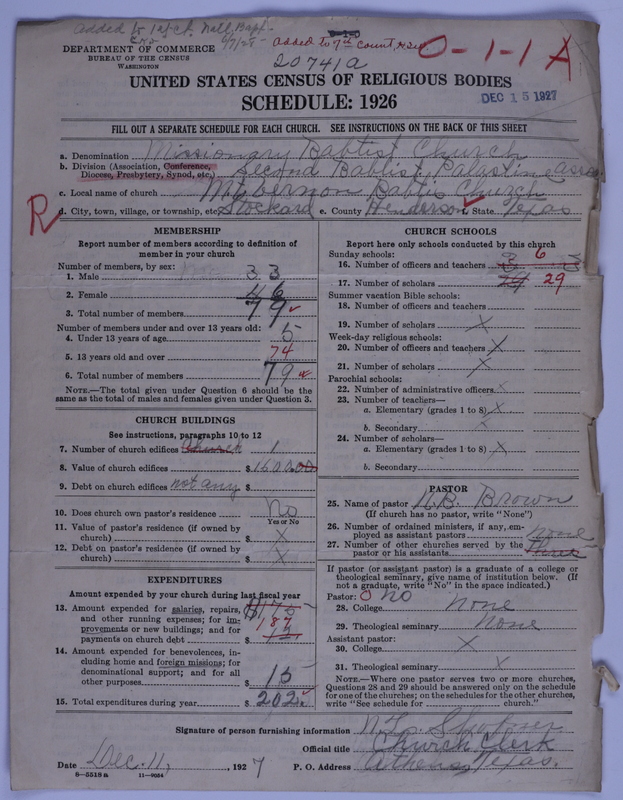 Added to 1st ch. Natl Bapt.
added to 7th Count, H.S.W.
O-1-1 A
DEPARTMENT OF COMMERCE
BUREAU OF THE CENSUS
WASHINGTON
20741a
UNITED STATES CENSUS OF RELIGIOUS BODIES
SCHEDULE: 1926
DEC 15 1927
FILL OUT A SEPARATE SCHEDULE FOR EACH CHURCH. SEE INSTRUCTIONS ON THE BACK OF THIS SHEET
a. Denomination Missionary Baptist Church
b. Division (Association, Conference, Diocese, Presbytery, Synod, etc.) Second Baptist, Palestine Asso.
c. Local name of church Mt. Vernon Babtis Church
R
d. City, town, village, or township, etc. Stockard e. County Henderson State Texas
MEMBERSHIP
Report number of members according to definition of member in your church
Number of members, by sex:
1. Male 33
2. Female 46
3. Total number of members 79
Number of members under and over 13 years old:
4. Under 13 years of age 5
5. 13 years old and over 74
6. Total number of members 79
NOTE.—The total given under Question 6 should be the same as the total of males and females given under Question 3.
CHURCH BUILDINGS
See instructions, paragraphs 10 to 12
7. Number of church edifices Church 1
8. Value of church edifices $ 1600.00
9. Debt on church edifices not any $
10. Does church own pastor's residence No
Yes or No
11. Value of pastor's residence (if owned by church) $ X
12. Debt on pastor's residence (if owned by church) $ X
EXPENDITURES
Amount expended by your church during last fiscal year
13. Amount expended for salaries, repairs, and other running expenses; for improvements or new buildings; and for payments on church debt $ 175 187 12
14. Amount expended for benevolences, including home and foreign missions; for denominational support; and for all other purposes $ 15
15. Total expenditures during year $ 202.
CHURCH SCHOOLS
Report here only schools conducted by this church
Sunday schools:
16. Number of officers and teachers 3 6
17. Number of scholars 24 29
Summer vacation Bible schools:
18. Number of officers and teachers
19. Number of scholars X
Week-day religious schools:
20. Number of officers and teachers X
21. Number of scholars X
Parochial schools:
22. Number of administrative officers X
23. Number of teachers—
a. Elementary (grades 1 to 8) X
b. Secondary
24. Number of scholars—
a. Elementary (grades 1 to 8) X
b. Secondary
PASTOR
25. Name of pastor N.B. Brown
(If church has no pastor, write "None")
26. Number of ordained ministers, if any, employed as assistant pastors none
27. Number of other churches served by the pastor or his assistants Three
If pastor (or assistant pastor) is a graduate of a college or theological seminary, give name of institution below. (If not a graduate, write "No" in the space indicated.)
Pastor: O No
28. College none
29. Theological seminary none
Assistant pastor:
30. College X
31. Theological seminary X
NOTE.—Where one pastor serves two or more churches, Questions 28 and 29 should be answered only on the schedule for one of the churches; on the schedules for the other churches, write "See schedule for church."
Signature of person furnishing information
Official title Church Clerk
Date Dec. 11, 1927 P. O. Address Athens, Texas.
8—5518 a 11—9054